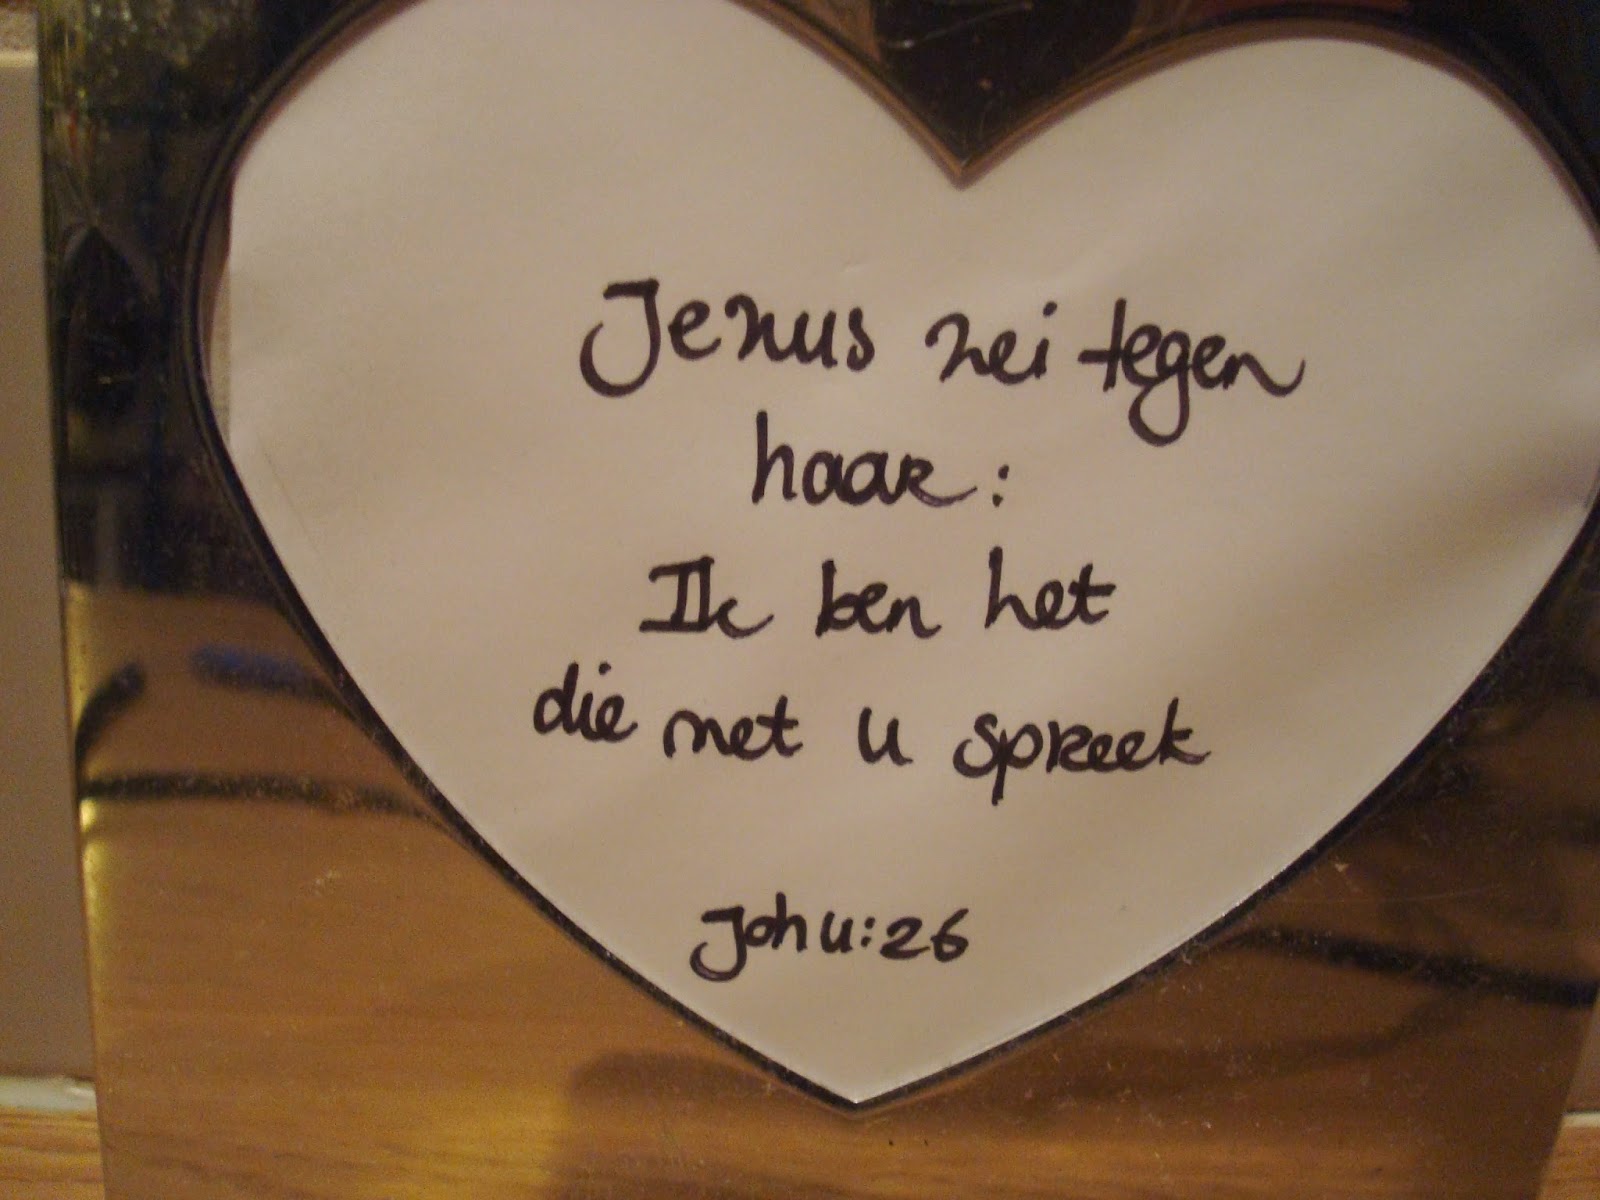 Jezus zei tegen
haar:
Ik ben het
die met u spreek
Joh 4:26